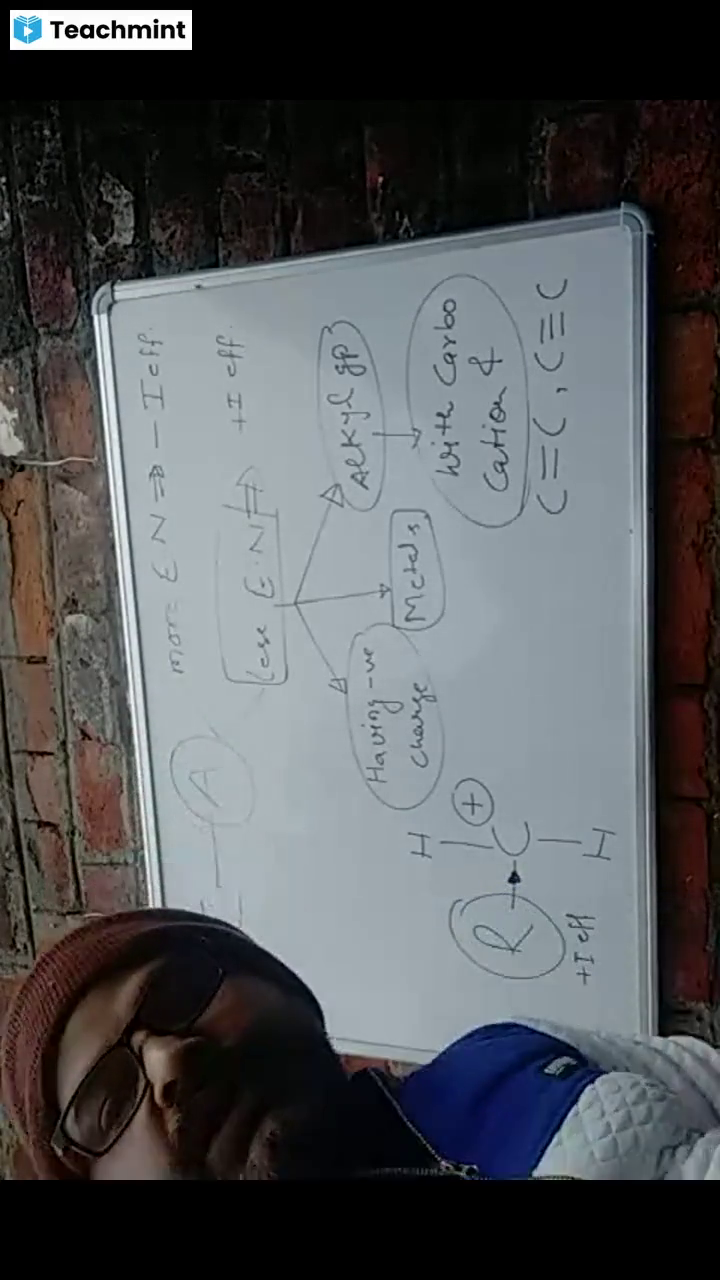 Teachmint
more EN ⇒ - I eff.
A
less E.N ⇒ +I eff.
Having -ve
charge
Metals
Alkyl gp
With Carbo
Cation &
C=C, C≡C
H
⊕
R C
H
+I eff